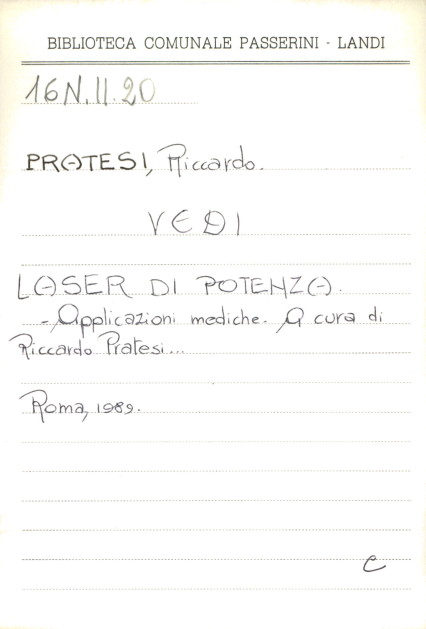 BIBLIOTECA COMUNALE PASSERINI - LANDI
16N.II.20
PRATESI, Riccardo.
VEDI
LASER DI POTENZA.
- Applicazioni mediche. A cura di
Riccardo Pratesi...
Roma, 1989.
C